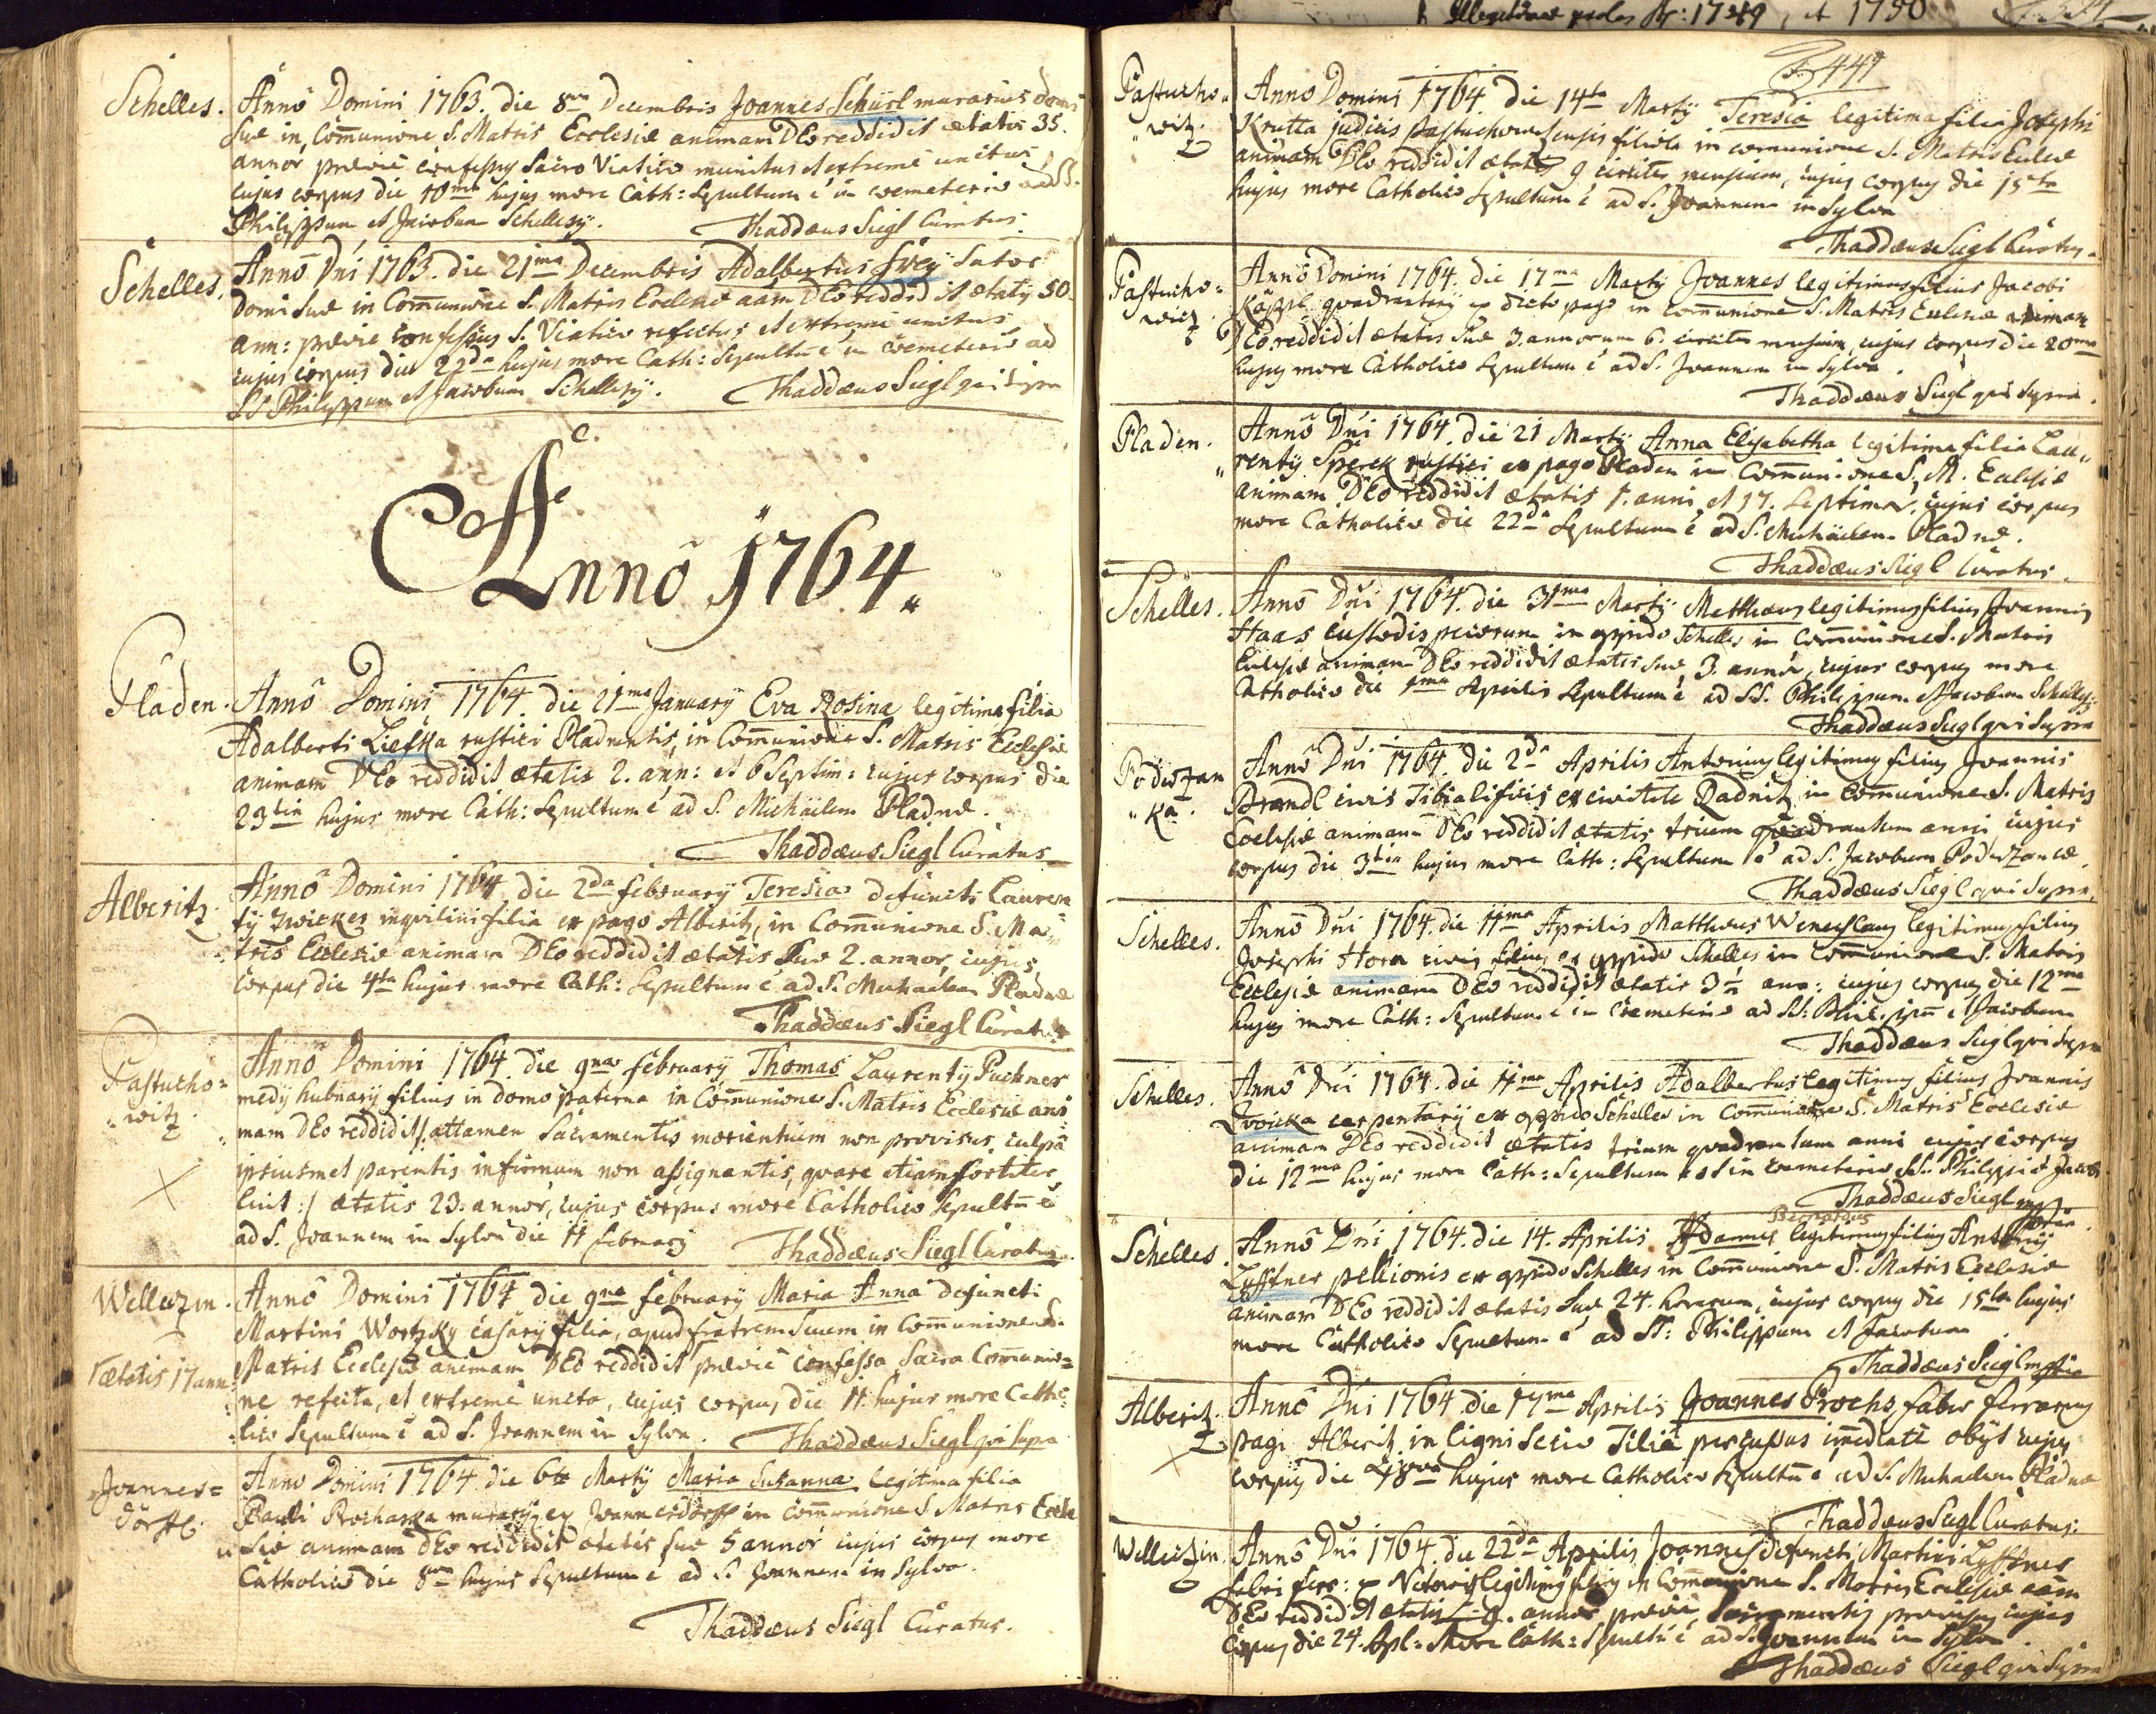 Schelles.
Anno Domini 1763. die 8va Decembris Joannes Schürl murarius domi
suæ in Com̄unione S. Matris Ecclesiæ animam DEo reddidit ætatis 35.
annor, præviè confessus Sacro Viatico munitus et extremè unctus,
cujus corpus die 10ma hujus more Cath: Sepultum è in cœmeterio ad SS.
Philippum et Jacobum Schellesÿ. Thaddæus Siegl Curatus.
Schelles.
Anno Dn̄i 1763. die 21ma Decembris Adalbertus Frey Sutor
domi suæ in Com̄unione S. Matris Ecclesiæ aām DEo reddidit ætatis 50.
ann: prævie confessus S. Viatico refectus et extremè unctus
cujus corpus die 22da hujus more Cath: Sepultū è in cœmeterio ad
SS Philippum et Jacobum Schellesÿ. Thaddæus Siegl qui supra
Anno 1764.
Pladen.
Anno Domini 1764. die 21ma Januarÿ Eva Rosina legitima filia
Adalberti Liefka rustici Pladnensis, in Com̄unione S. Matris Ecclesiæ
animam DEo reddidit ætatis 2. ann: et 6 Septim: cujus corpus die
23tia hujus more Cath: Sepultum è ad S. Michäelem Pladnæ.
Thaddæus Siegl Curatus
Alberitz.
Anno Domini 1764 die 2da Februarÿ Teresia defuncti Lauren
tÿ Zwicker inquilini filia ex pago Alberitz, in Com̄unione S. Ma-
tris Ecclesiæ animam DEo reddidit ætatis suæ 2. annor, cujus
corpus die 4ta hujus more Cath: Sepultum è ad S. Michaelem Pladnæ
Thaddæus Siegl Curatus
Pastucho=
witz
Anno Domini 1764. die 9na Februarÿ Thomas Laurentÿ Puchner
medÿ hubnarÿ filius in domo paterna in Com̄unione S. Matris Ecclesiæ ani
mam DEo reddidit /: attamen Sacramentis morientium non provisus, culpâ
ipsiusmet parentis infirmum non assignantis, quare etiam fortiter
luit :/ ætatis 23. annor, cujus corpus more Catholico Sepultū è
ad S. Joannem in Sylva die 11 Februarÿ Thaddæus Siegl Curatus.
Welleczin.
Anno Domini 1764 die 9na Februarÿ Maria Anna defuncti
Martini Wortzky casarÿ filia, apud fratrem suum in Com̄unione S.
ætatis 17 ann:
Matris Ecclesiæ animam DEo reddidit præviè confessa, Sacra Com̄unio=
ne refecta, et extremè uncta, cujus corpus die 11. hujus more Catho=
lico Sepultum è ad S. Joannem in Sylva. Thaddæus Siegl qui supra
Joannes=
dörffl.
Anno Domini 1764 die 6ta Martÿ Maria Susanna legitima filia
Pauli Prochaska murarÿ ex Joannesdorff in com̄unione S Matris Eccle
siæ animam DEo reddidit ætatis suæ 5 annor cujus corpus more
Catholico die 8va hujus Sepultum è ad S. Joannem in Sylva.
Thaddæus Siegl Curatus.
Illegitimæ proles Aō: 1749, et 1750
441
Pastucho=
witz.
Anno Domini 1764 die 14ta Martÿ Teresia legitima filia Josephi
Krutta judicis Pastuchowicensis filiola in com̄unione S. Matris Eccleæ
animam DEo reddidit ætatis 9 circiter mensium, cujus corpus die 15ta
hujus more Catholico Sepultum è ad S. Joannem in Sylva
Thaddæus Siegl Curatus.
Pastucho=
wicz
Anno Domini 1764. die 17ma Martÿ Joannes legitimus filius Jacobi
Käppl quadrantarÿ ex dicto pago in com̄unione S. Matris Ecclesiæ animam
DEo reddidit ætatis suæ 3. annorum 6. circiter mensium, cujus corpus die 20ma
hujus more Catholico Sepultum è ad S. Joannem in Sylva.
Thaddæus Siegl qui supra.
Pladen.
Anno Dn̄i 1764. die 21 Martÿ Anna Elisabetha legitima filia Lau
rentÿ Sperck rustici ex pago Pladen in Com̄unione S. M. Ecclesiæ
animam DEo reddidit ætatis 1. anni et 17. Septimar, cujus corpus
more Catholico die 22da Sepultum è ad S. Michäelem Pladnæ.
Thaddæus Siegl Curatus.
Schelles.
Anno Dn̄i 1764. die 31ma Martÿ Matthæus legitimus filius Joannis
Haas custodis pecorum in oppido Schelles in Com̄unione S. Matris
Ecclesiæ animam DEo reddidit ætatis suæ 3. annor, cujus corpus more
Catholico die 1ma Aprilis Sepultum è ad SS. Philippum et Jacobum Schellesÿ.
Thaddæus Siegl qui supra
Podersan
ka.
Anno Dn̄i 1764. die 2da Aprilis Antonius legitimus filius Joannis
Brandl civis Tibialificis ex civitate Radnitz in Com̄unione S. Matris
Ecclesiæ animam DEo reddidit ætatis trium quadrantum anni cujus
corpus die 3tia hujus more Cath: Sepultum è ad S. Jacobum Poderzancæ.
Thaddæus Siegl qui supra.
Schelles.
Anno Dn̄i 1764. die 11ma Aprilis Matthæus Wenceslaus legitimus filius
Josephi Hora civis filius ex oppido Schelles in Com̄unione S. Matris
Ecclesiæ animam DEo reddidit ætatis 3½ ann: cujus corpus die 12ma
hujus more Cath: Sepultum è in Cœmeterio ad SS: Philippū et Jacobum
Thaddæus Siegl qui supra
Schelles.
Anno Dn̄i 1764. die 11ma Aprilis Adalbertus legitimus filius Joannis
Zwicka carpentarÿ ex oppido Schelles in Com̄unione S. Matris Ecclesiæ
animam DEo reddidit ætatis trium quadrantum anni cujus corpus
die 12ma hujus more Cath: Sepultum est in cœmeterio SS. Philippi et Jacobi
Thaddæus Siegl mppria.
Schelles.
Bernardus
Anno Dn̄i 1764. die 14. Aprilis Adamus legitimus filius Antonÿ
Lyfftner pellionis ex oppido Schelles in Com̄unione S. Matris Ecclesiæ
animam DEo reddidit ætatis suæ 24. horarum, cujus corpus die 15ta hujus
more Catholico Sepultum è ad SS: Philippum et Jacobum
Thaddæus Siegl mppria
Alberitz.
Anno Dn̄i 1764 die 17ma Aprilis Joannes Prochs faber ferrarius
pagi Alberitz in ligni Tiliâ percussus im̄ediatè obÿt cujus
corpus die 18va hujus more Catholico Sepultū è ad S. Michaelem Pladnæ
Thaddæus Siegl Curatus.
Welleczin.
Anno Dn̄i 1764. die 22da Aprilis Joannes defuncti Martini Lyfftner
fabri ferr: ex legitimus filius in Com̄unione S. Matris Ecclesiæ aām
DEo reddidit ætatis annor præviè Sacramentis provisus cujus
corpus die 24. Apl: more Cath: Sepultū è ad S. Joannem in Sylva.
Thaddæus Siegl qui supra